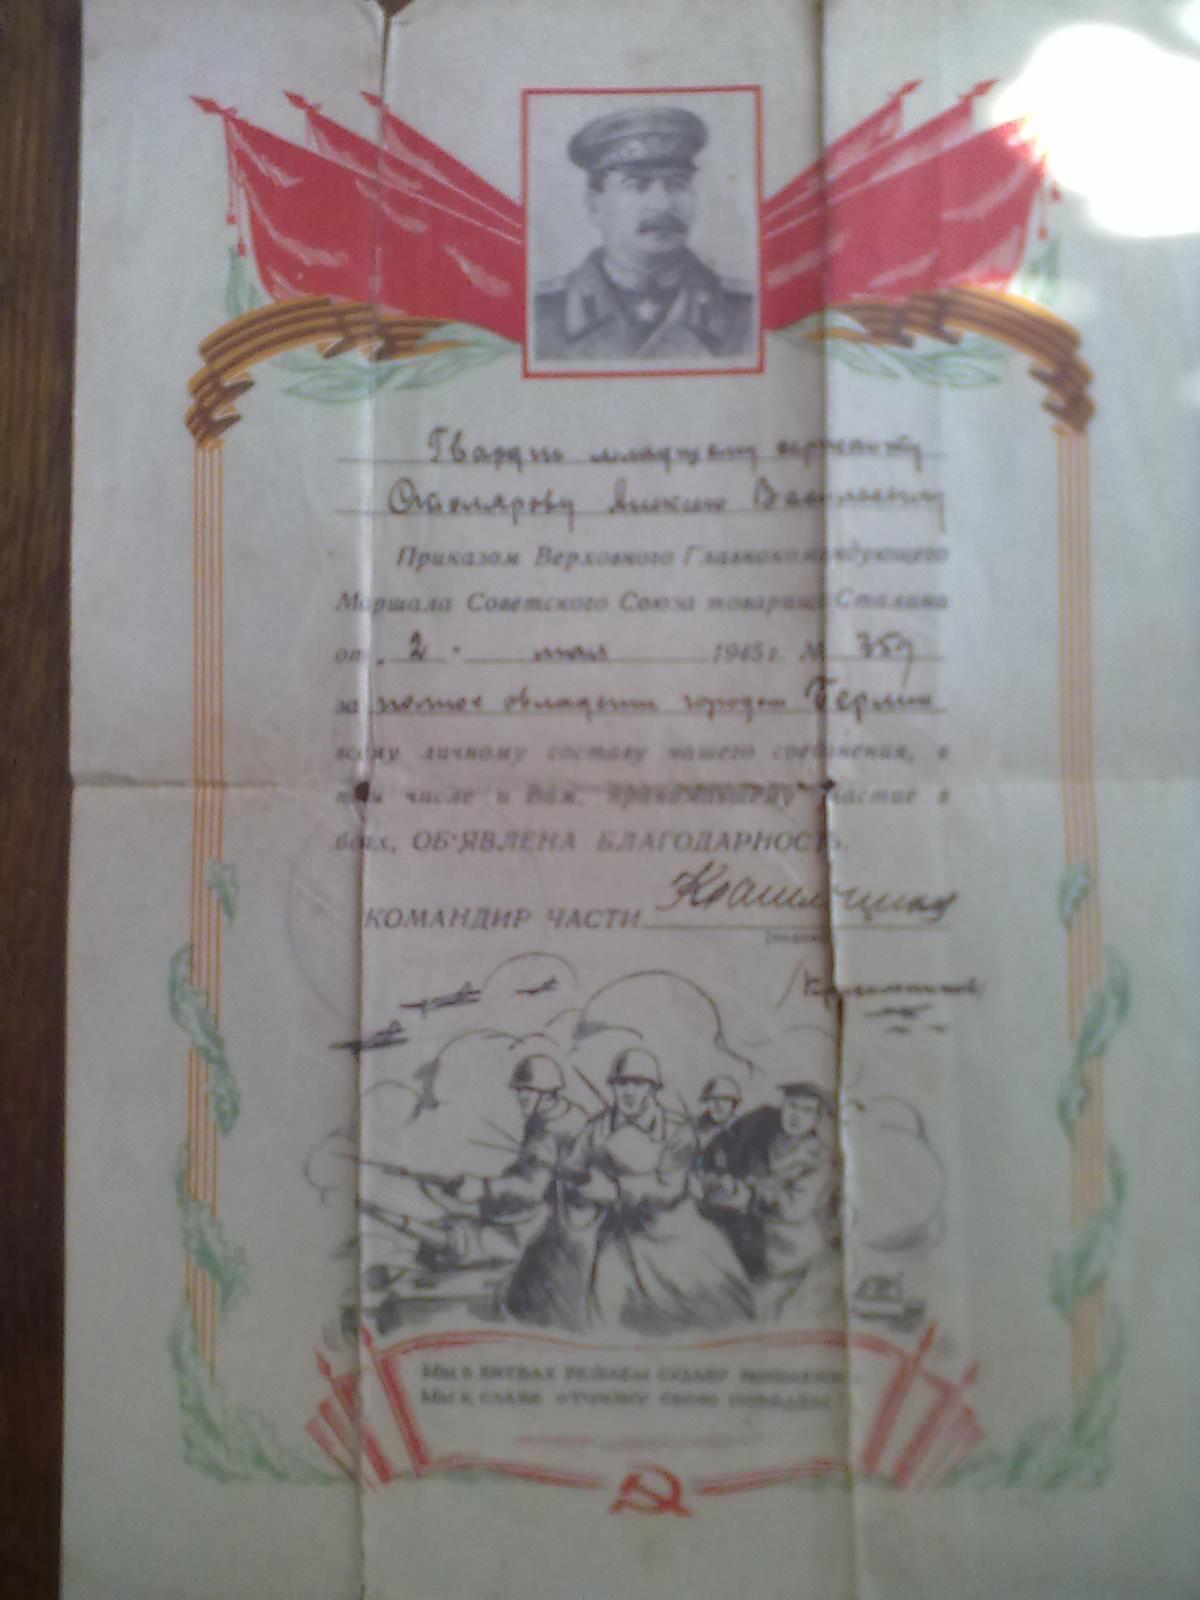 Гвардии младшему сержанту
Столярову Алексею Васильевичу
Приказом Верховного Главнокомандующего
Маршала Советского Союза товарища Сталина
от 2 мая 1945 г. № 359
за полное овладение городом Берлин
всему личному составу нашего соединения, в
том числе и Вам, принимавшему участие в
боях, ОБ'ЯВЛЕНА БЛАГОДАРНОСТЬ.
КОМАНДИР ЧАСТИ
МЫ В БИТВАХ РЕШАЕМ СУДЬБУ ПОКОЛЕНИЙ,
МЫ К СЛАВЕ ОТЧИЗНУ СВОЮ ПОВЕДЁМ!